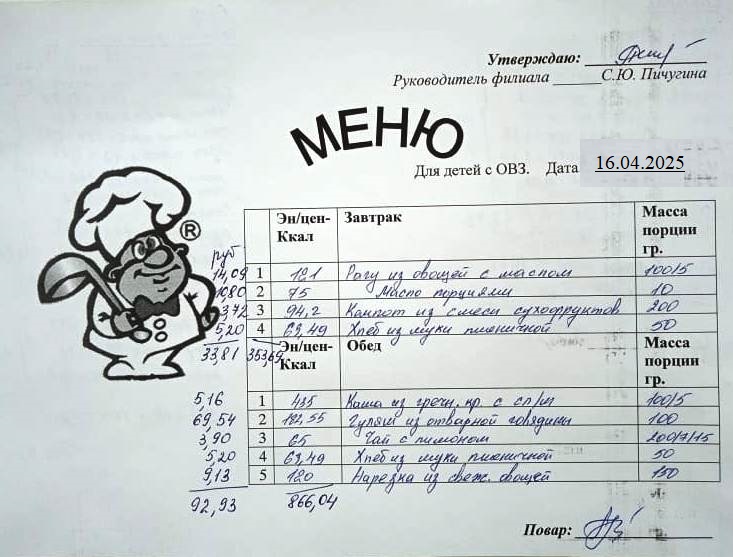 Утверждаю:
Руководитель филиала ______ С.Ю. Пичугина
МЕНЮ
Для детей с ОВЗ. Дата 16.04.2025
®
Эн/цен-Ккал Завтрак Масса порции гр.
руб
14,09 1 121 Рагу из овощей с маслом 100/5
10,80 2 75 Масло порциями 10
3,72 3 94,2 Компот из смеси сухофруктов 200
5,20 4 63,49 Хлеб из муки пшеничной 50
33,81 353,69
Эн/цен-Ккал Обед Масса порции гр.
5,16 1 435 Каша из гречн. кр. с сл/м 100/5
69,54 2 182,55 Гуляш из отварной говядины 100
3,90 3 65 Чай с лимоном 200/7/15
5,20 4 63,49 Хлеб из муки пшеничной 50
9,13 5 120 Нарезка из свеж. овощей 150
92,93 866,04
Повар: